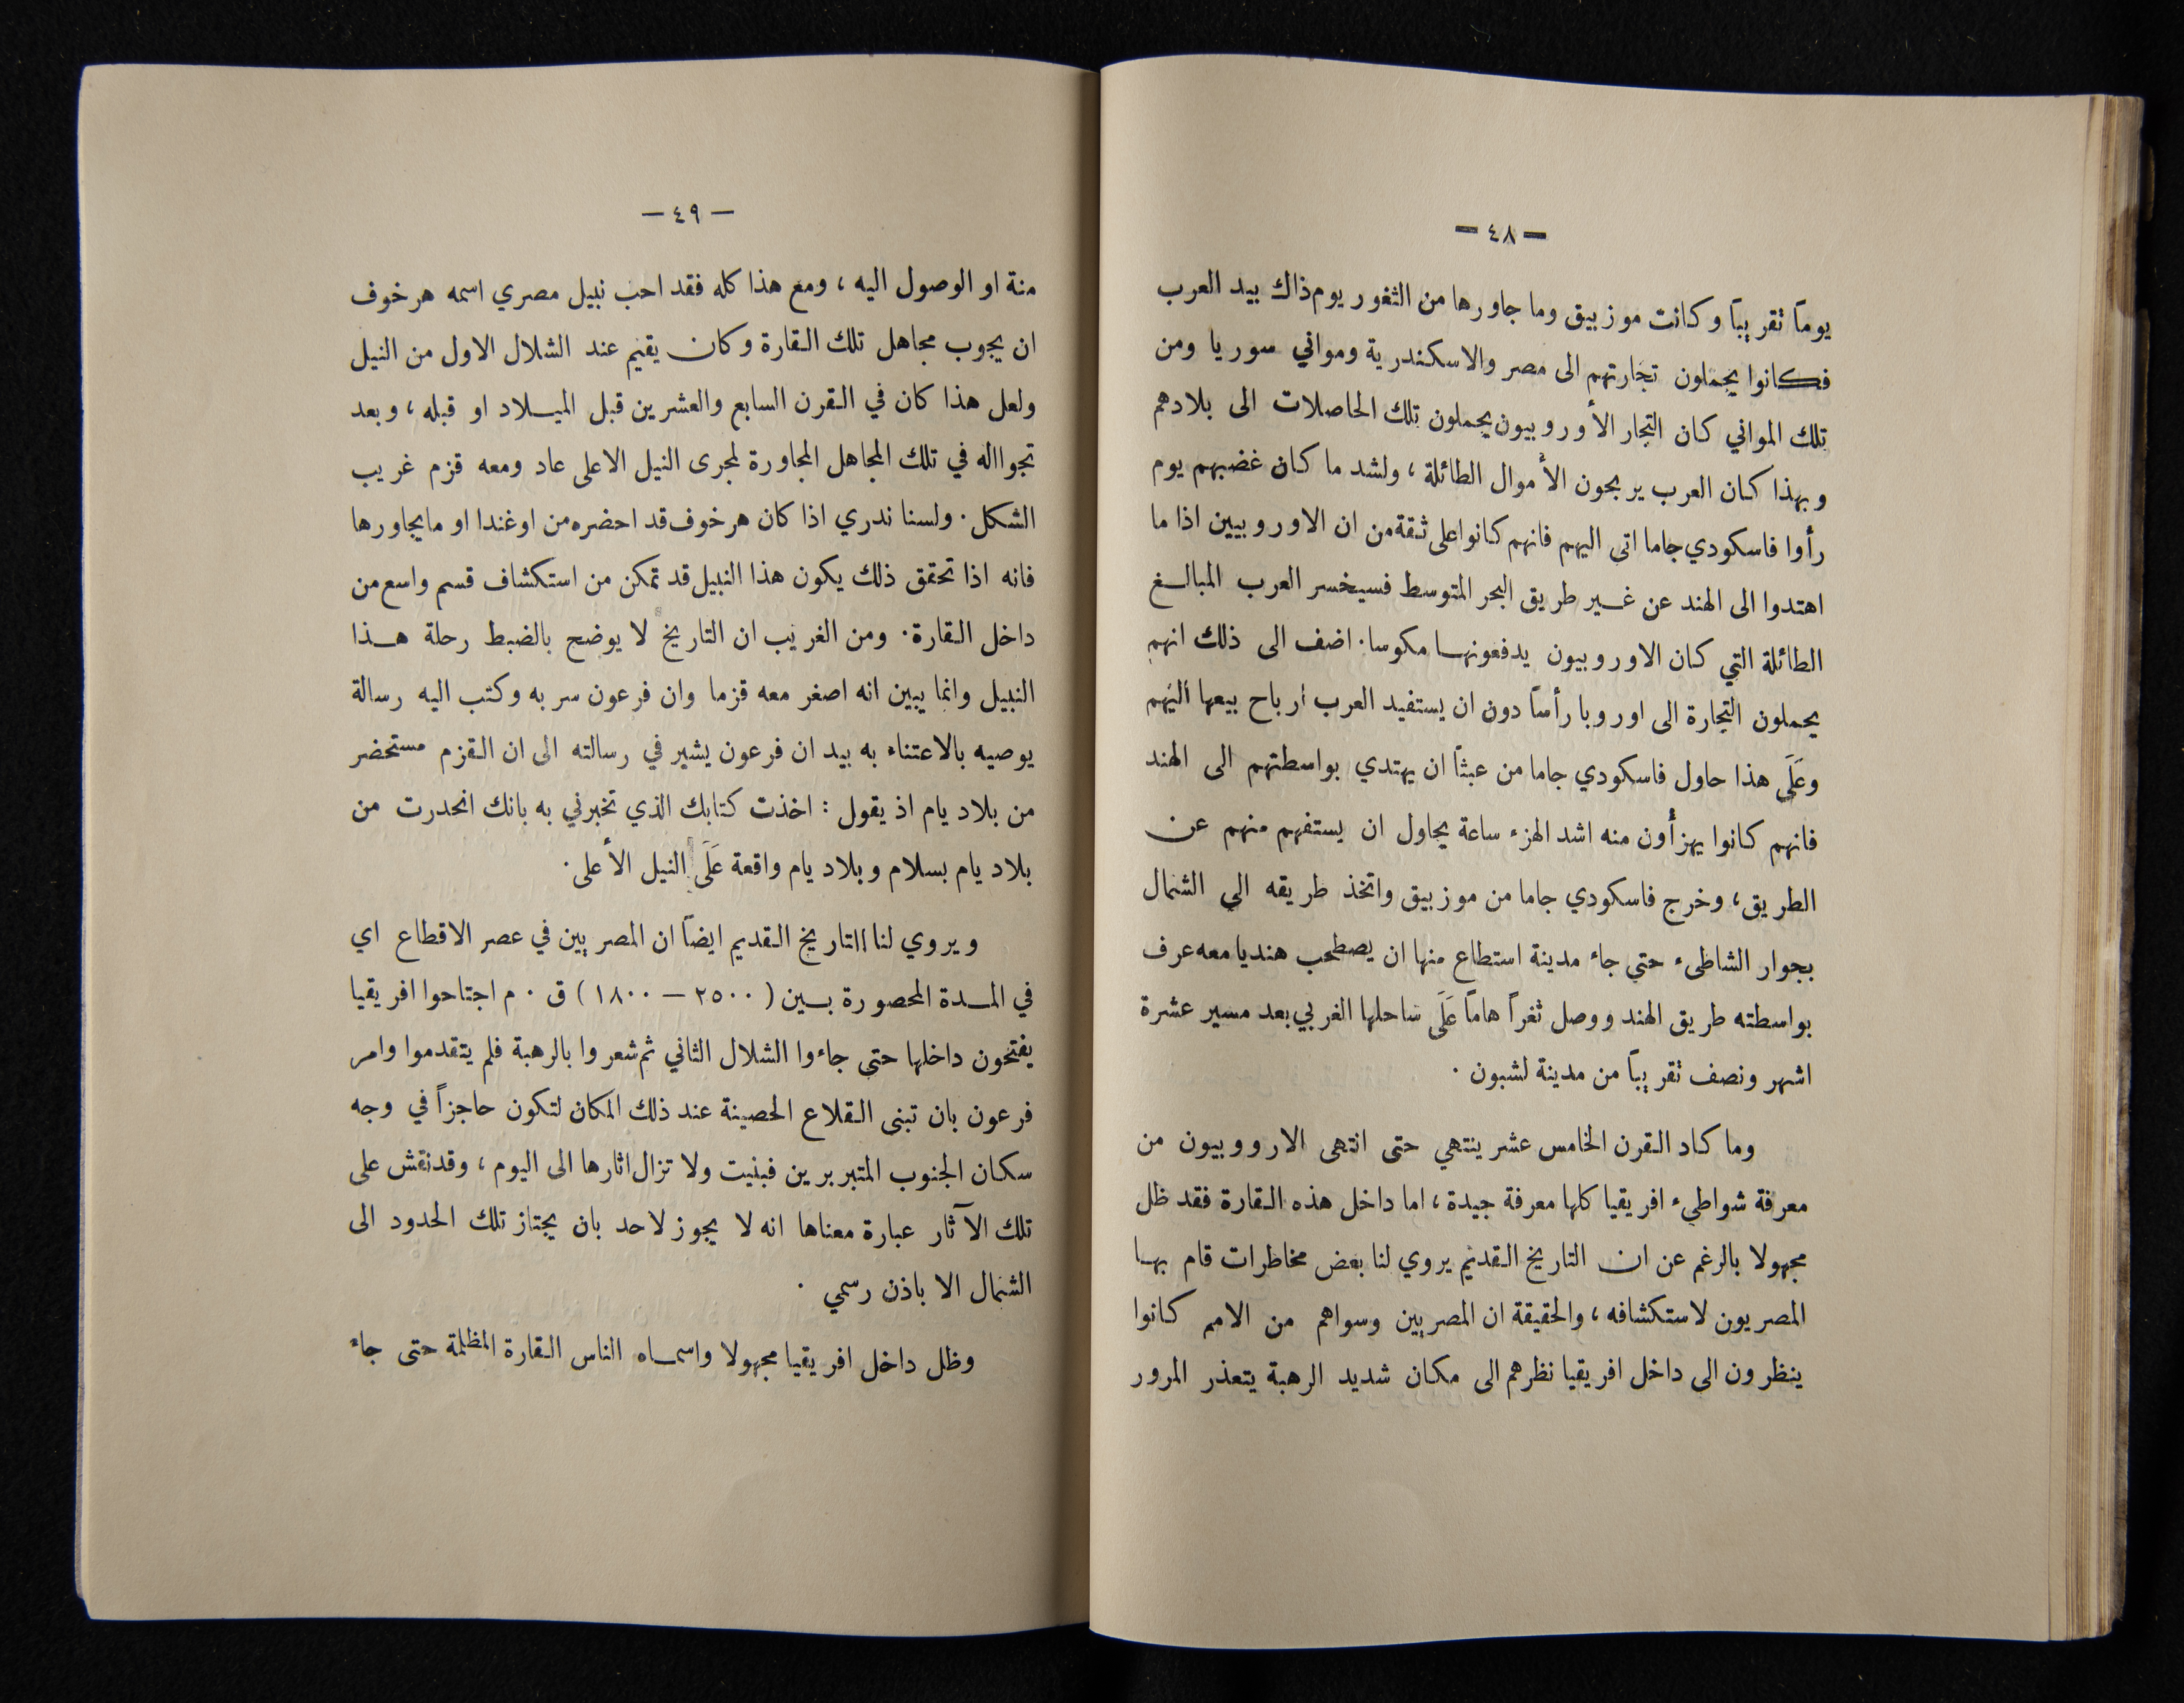 — ٤٨ —
يوماً تقريباً وكانت موزبيق وما جاورها من الثغور يوم ذاك بيد العرب
فكانوا يحملون تجارتهم الى مصر والاسكندرية ومواني سوريا ومن
تلك المواني كان التجار الأوروبيون يحملون تلك الحاصلات الى بلادهم
وبهذا كان العرب يربحون الأموال الطائلة ، ولشد ما كان غضبهم يوم
رأوا فاسكودي جاما اتى اليهم فانهم كانوا على ثقة من ان الاوروبيين اذا ما
اهتدوا الى الهند عن غير طريق البحر المتوسط فسيخسر العرب المبالغ
الطائلة التي كان الاوروبيون يدفعونها مكوسا. اضف الى ذلك انهم
يحملون التجارة الى اوروبا رأساً دون ان يستفيد العرب ارباح بيعها اليهم
وعَلَى هذا حاول فاسكودي جاما من عبثاً ان يهتدي بواسطتهم الى الهند
فانهم كانوا يهزأون منه اشد الهزء ساعة يحاول ان يستفهم منهم عن
الطريق ، وخرج فاسكودي جاما من موزبيق واتخذ طريقه الى الشمال
بجوار الشاطىء حتي جاء مدينة استطاع منها ان يصطحب هنديا معه عرف
بواسطته طريق الهند ووصل ثغراً هاماً عَلَى ساحلها الغربي بعد مسير عشرة
اشهر ونصف تقريباً من مدينة لشبون .
وما كاد القرن الخامس عشر ينتهي حتى انتهى الارووبيون من
معرفة شواطيء افريقيا كلها معرفة جيدة ، اما داخل هذه القارة فقد ظل
مجهولا بالرغم عن ان التاريخ القديم يروي لنا بعض مخاطرات قام بها
المصريون لاستكشافه ، والحقيقة ان المصريين وسواهم من الامم كانوا
ينظرون الى داخل افريقيا نظرهم الى مكان شديد الرهبة يتعذر المرور
— ٤٩ —
منة او الوصول اليه ، ومع هذا كله فقد احب نبيل مصري اسمه هرخوف
ان يجوب مجاهل تلك القارة وكان يقيم عند الشلال الاول من النيل
ولعل هذا كان في القرن السابع والعشرين قبل الميلاد او قبله ، وبعد
تجوااله في تلك المجاهل المجاورة لمجرى النيل الاعلى عاد ومعه قزم غريب
الشكل . ولسنا ندري اذا كان هرخوف قد احضره من اوغندا او مايجاورها
فانه اذا تحقق ذلك يكون هذا النبيل قد تمكن من استكشاف قسم واسع من
داخل القارة . ومن الغريب ان التاريخ لا يوضح بالضبط رحلة هذا
النبيل وانما يبين انه اصغر معه قزما وان فرعون سر به وكتب اليه رسالة
يوصيه بالاعتناء به بيد ان فرعون يشير في رسالته الى ان القزم مستحضر
من بلاد يام اذ يقول : اخذت كتابك الذي تخبرني به بانك انحدرت من
بلاد يام بسلام وبلاد يام واقعة عَلَى النيل الأعلى .
ويروي لنا التاريخ القديم ايضاً ان المصريين في عصر الاقطاع اي
في المدة المحصورة بين ( ٢٥٠٠ — ١٨٠٠ ) ق . م اجتاحوا افريقيا
يفتحون داخلها حتى جاءوا الشلال الثاني ثم شعروا بالرهبة فلم يتقدموا وامر
فرعون بان تبنى القلاع الحصينة عند ذلك المكان لتكون حاجزاً في وجه
سكان الجنوب المتبربرين فبنيت ولا تزال اثارها الى اليوم ، وقد نقش على
تلك الآثار عبارة معناها انه لا يجوز لاحد بان يجتاز تلك الحدود الى
الشمال الا باذن رسمي .
وظل داخل افريقيا مجهولا واسماه الناس القارة المظلمة حتى جاء